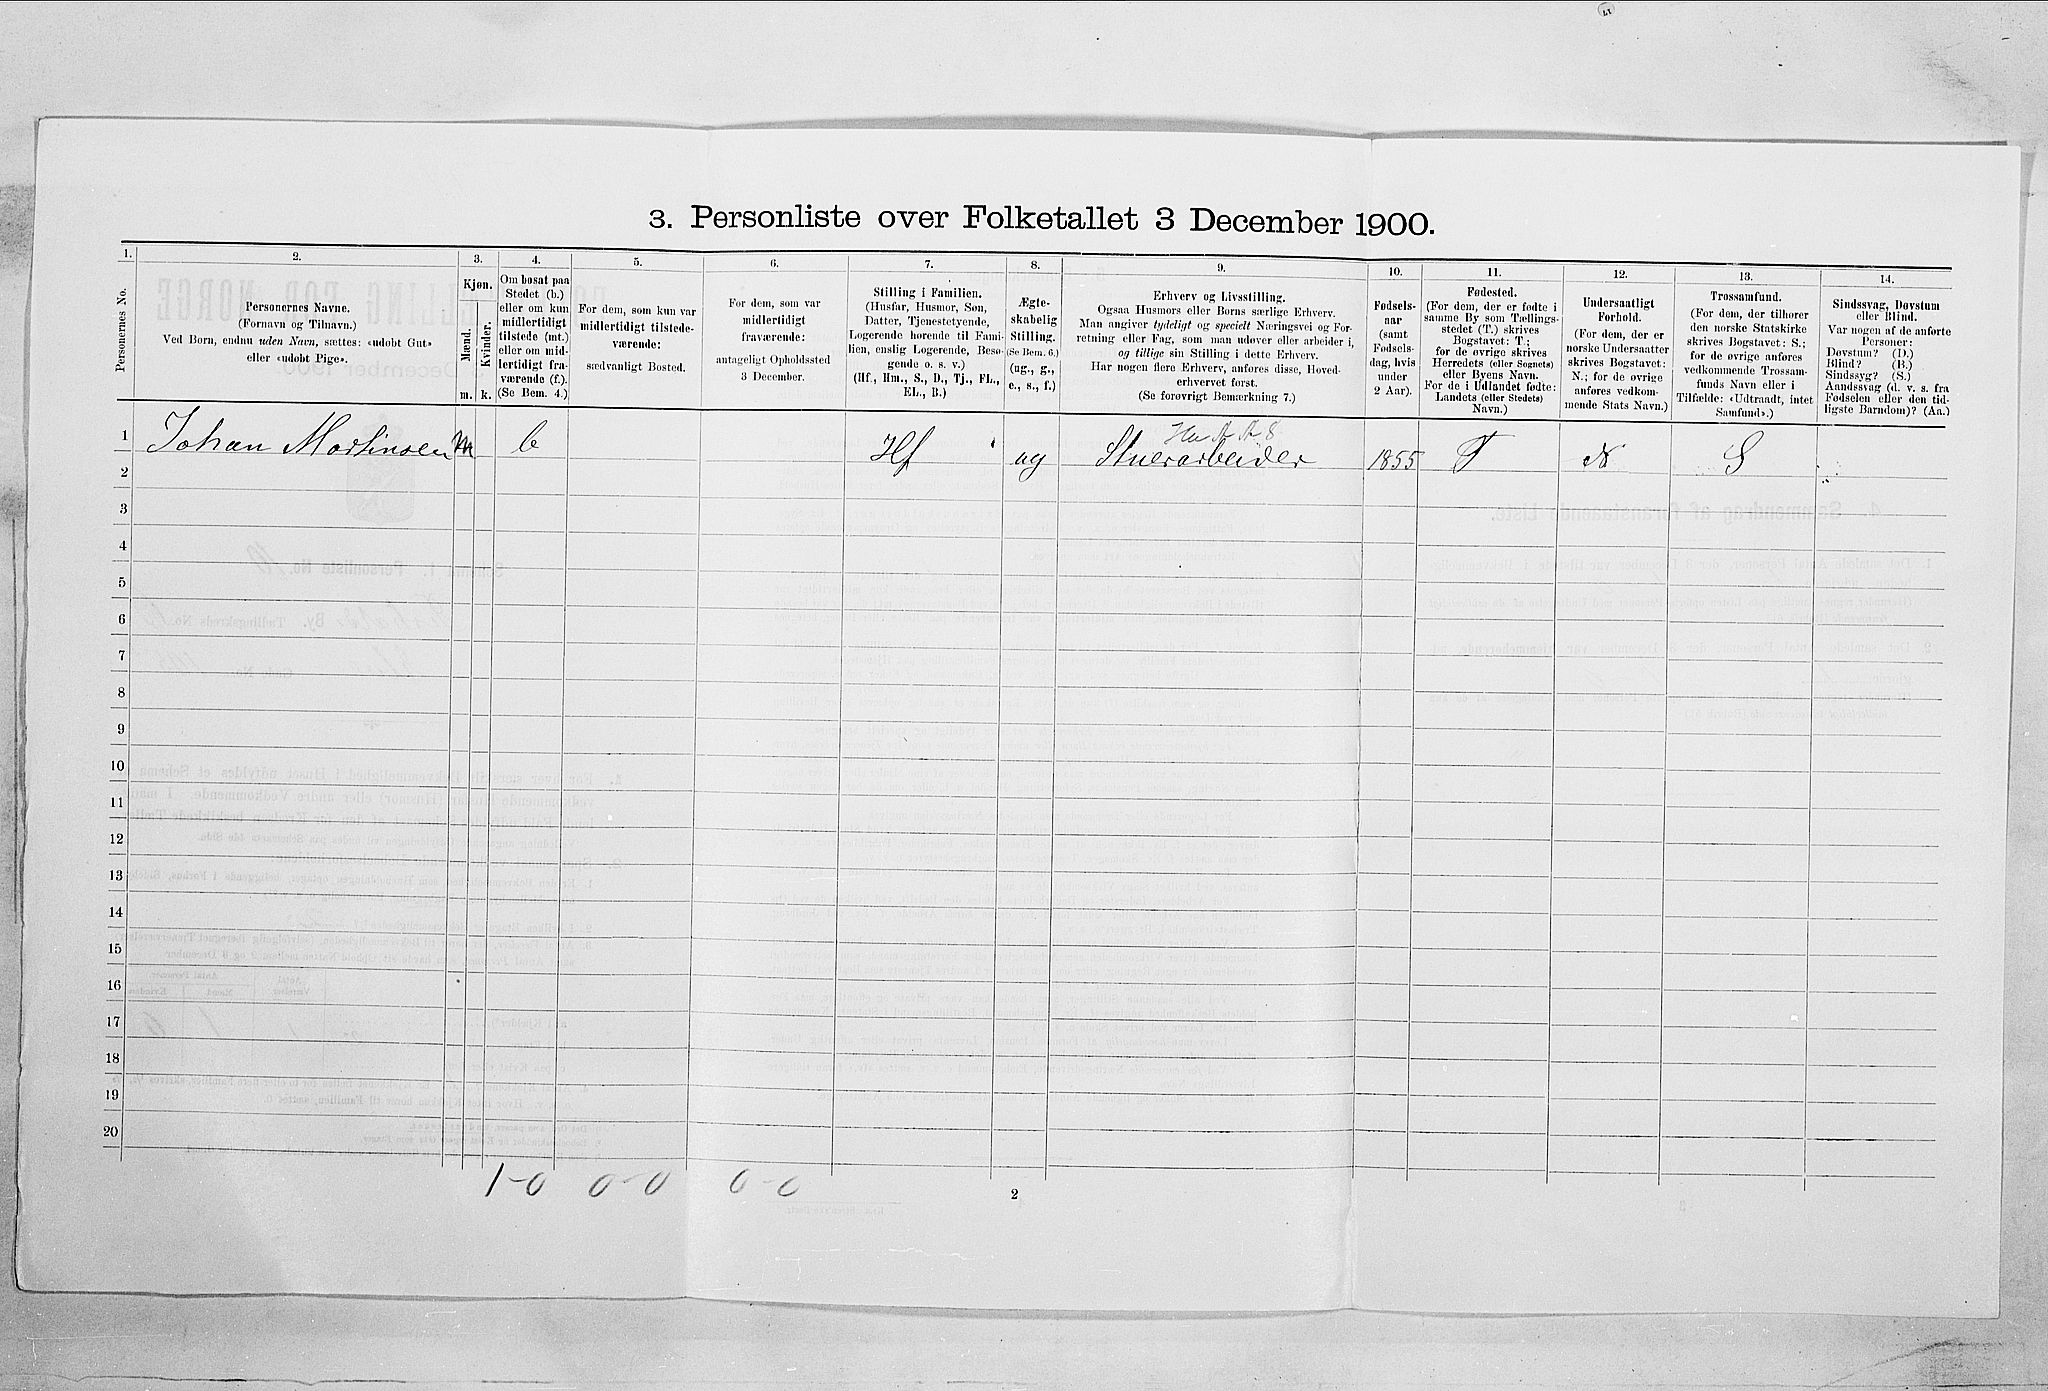 3. Personliste over Folketallet 3 December 1900.
1.
2.
3.
4.
5.
6.
7.
8.
9.
10.
11.
12.
13.
14.
Personernes No.
Personernes Navne.
(Fornavn og Tilnavn.)
Ved Børn, endnu uden Navn, sættes: «udøbt Gut»
eller «udøbt Pige».
Kjøn.
Mænd.
Kvinder.
m.
k.
Om bosat paa
Stedet (b.)
eller om kun
midlertidigt
tilstede (mt.)
eller om mid-
lertidigt fra-
værende (f.).
(Se Bem. 4.)
For dem, som kun var
midlertidigt tilstede-
værende:
sædvanligt Bosted.
For dem, som var
midlertidigt
fraværende:
antageligt Opholdssted
3 December.
Stilling i Familien.
(Husfar, Husmor, Søn,
Datter, Tjenestetyende,
Logerende hørende til Fami-
lien, enslig Logerende, Besø-
gende o. s. v.)
(Hf., Hm., S., D., Tj., FL.,
EL., B.)
Ægte-
skabelig
Stilling.
(Se Bem. 6.)
(ug., g.,
e., s., f.)
Erhverv og Livsstilling.
Ogsaa Husmors eller Børns særlige Erhverv.
Man angiver tydeligt og specielt Næringsvei og For-
retning eller Fag, som man udøver eller arbeider i,
og tillige sin Stilling i dette Erhverv.
Har nogen flere Erhverv, anføres disse, Hoved-
erhvervet først.
(Se forøvrigt Bemærkning 7.)
Fødsels-
aar
(samt
Fødsels-
dag, hvis
under
2 Aar).
Fødested.
(For dem, der er fødte i
samme By som Tællings-
stedet (T.) skrives
Bogstavet: T.;
for de øvrige skrives
Herredets (eller Sognets)
eller Byens Navn.
For de i Udlandet fødte:
Landets (eller Stedets)
Navn.)
Undersaatligt
Forhold.
(For dem, der er
norske Undersaatter
skrives Bogstavet:
N.; for de øvrige
anføres vedkom-
mende Stats Navn.)
Trossamfund.
(For dem, der tilhører
den norske Statskirke
skrives Bogstavet: S.;
for de øvrige anføres
vedkommende Trossam-
funds Navn eller i
Tilfælde: «Udtraadt, intet
Samfund».)
Sindssvag, Døvstum
eller Blind.
Var nogen af de anførte
Personer:
Døvstum? (D.)
Blind? (B.)
Sindssyg? (S.)
Aandssvag (d. v. s. fra
Fødselen eller den tid-
ligste Barndom)? (Aa.)
1 Johan Martinsen m b Hf ug Stuerarbeider 1855 T N S
2
3
4
5
6
7
8
9
10
11
12
13
14
15
16
17
18
19
20
1-0 0-0 0-0
2